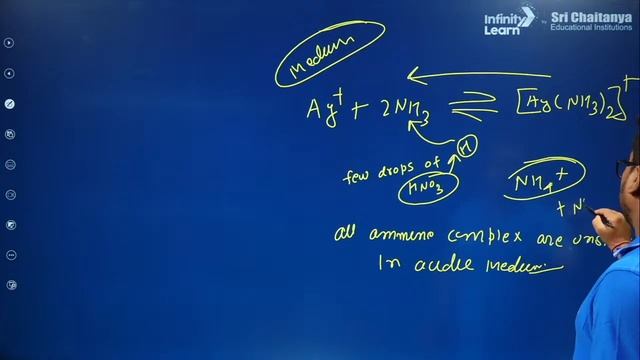 Infinity Learn by Sri Chaitanya Educational Institutions
Medium
Ag+ + 2NH3 ⇌ [Ag(NH3)2]+
H
few drops of HNO3
NH4+
+ N
all ammine complex are uns
In acidic medium